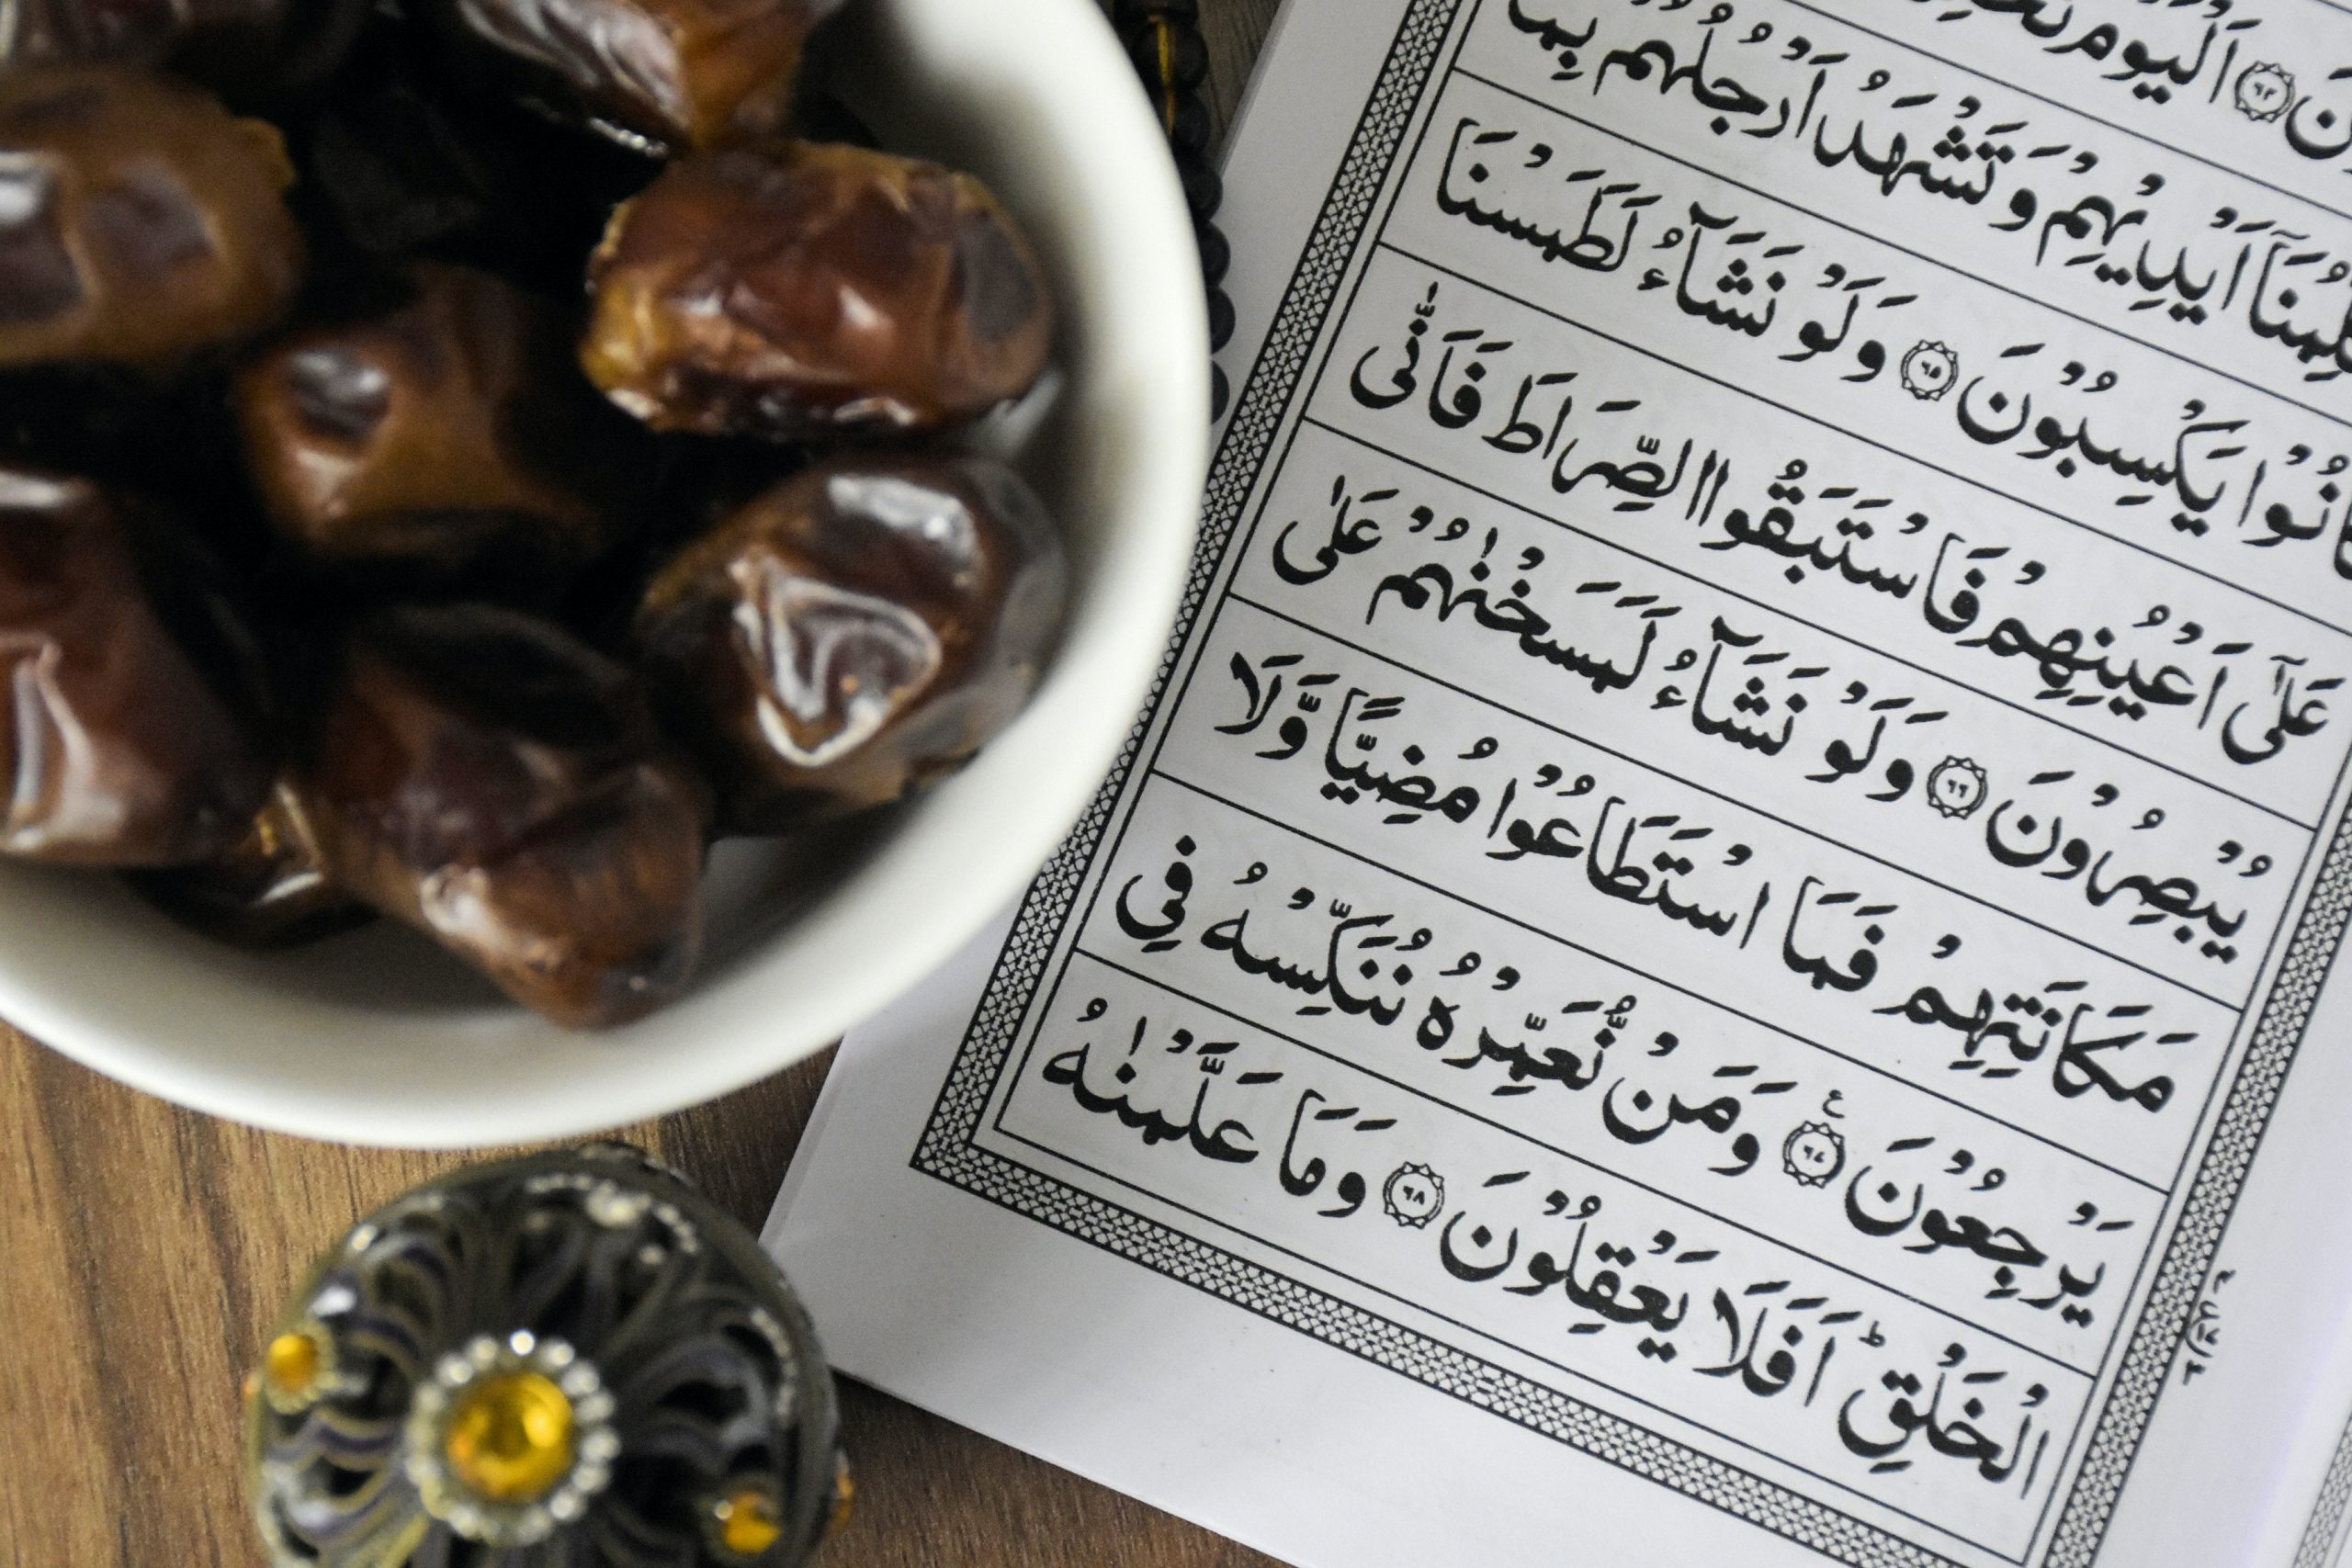 ٦٤ اَلْيَوْمَ
اَيْدِيْهِمْ وَتَشْهَدُ اَرْجُلُهُمْ بِمَا
كَانُوْا يَكْسِبُوْنَ ٦٥ وَلَوْ نَشَآءُ لَطَمَسْنَا
عَلٰٓى اَعْيُنِهِمْ فَاسْتَبَقُوا الصِّرَاطَ فَاَنّٰى
يُبْصِرُوْنَ ٦٦ وَلَوْ نَشَآءُ لَمَسَخْنٰهُمْ عَلٰى
مَكَانَتِهِمْ فَمَا اسْتَطَاعُوْا مُضِيًّا وَّلَا
يَرْجِعُوْنَ ٦٧ ع وَمَنْ نُّعَمِّرْهُ نُنَكِّسْهُ فِي
الْخَلْقِؕ اَفَلَا يَعْقِلُوْنَ ٦٨ وَمَا عَلَّمْنٰهُ